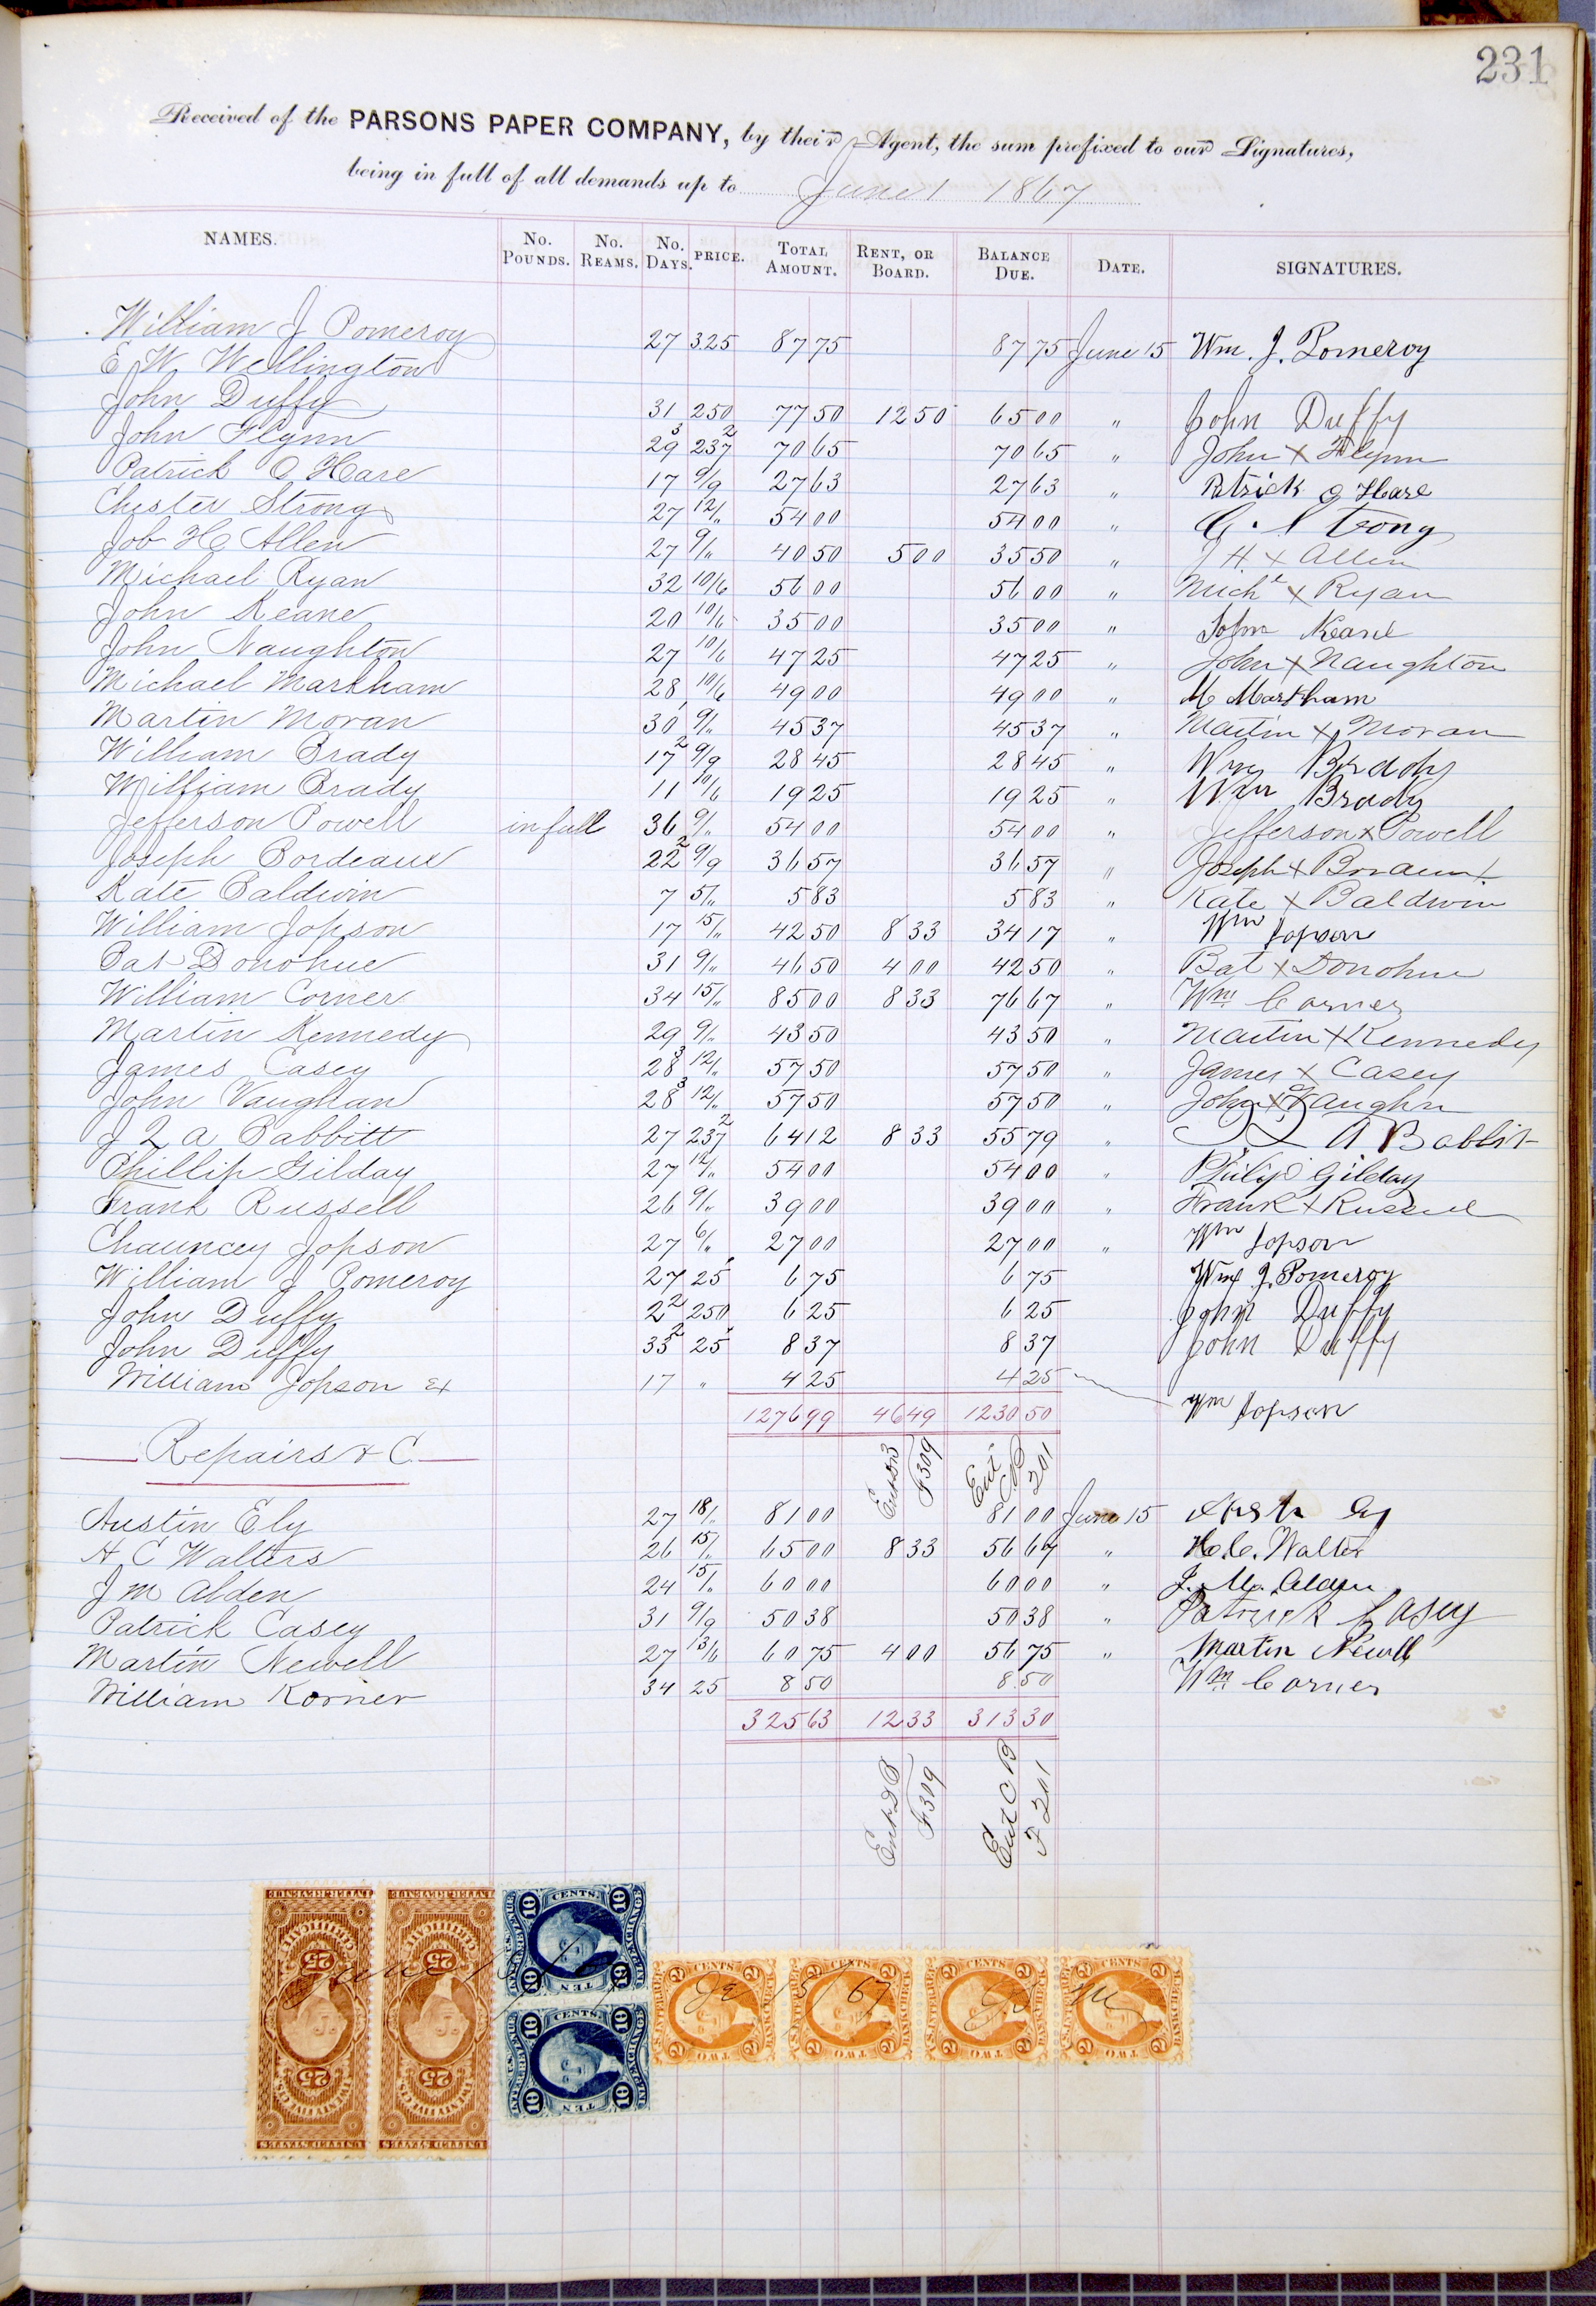 231
Received of the PARSONS PAPER COMPANY, by their Agent, the sum prefixed to our Signatures,
being in full of all demands up to June 1 1867
NAMES. No. POUNDS. No. REAMS. No. DAYS. PRICE. TOTAL AMOUNT. RENT, OR BOARD. BALANCE DUE. DATE. SIGNATURES.
William J Pomeroy 27 3.25 87 75 87 75 June 15 Wm. J. Pomeroy
E W Wellington
John Duffy 31 250 77 50 12 50 65 00 " John Duffy
John Flynn 29 3 237 2 70 65 70 65 " John X Flynn
Patrick O Hare 17 9/9 27 63 27 63 " Patrick O Hare
Chester Strong 27 12/" 54 00 54 00 " C. Strong
Job H Allen 27 9/" 40 50 5 00 35 50 " J H. X Allen
Michael Ryan 32 10/6 56 00 56 00 " Michl X Ryan
John Keane 20 10/6 35 00 35 00 " John Keane
John Naughton 27 10/6 47 25 47 25 " John X Naughton
Michael Markham 28 10/6 49 00 49 00 " M Markham
Martin Moran 30 1 9/" 45 37 45 37 " Martin X Moran
William Brady 17 2 9/9 28 45 28 45 " Wm Brady
William Brady 11 10/6 19 25 19 25 " Wm Brady
Jefferson Powell in full 36 9/" 54 00 54 00 " Jefferson X Powell
Joseph Bordeaux 22 2 9/9 36 57 36 57 " Joseph X
Kate Baldwin 7 5/" 5 83 5 83 " Kate X Baldwin
William Jopson 17 15/" 42 50 8 33 34 17 " Wm Jopson
Bat Donohue 31 9/" 46 50 4 00 42 50 " Bat X Donohue
William Corner 34 15/" 85 00 8 33 76 67 " Wm Corner
Martin Kennedy 29 9/" 43 50 43 50 " Martin X Kennedy
James Casey 28 3 12/" 57 50 57 50 " James X Casey
John Vaughan 28 3 12/" 57 50 57 50 " John X Vaughn
J Q A Babbitt 27 237 2 64 12 8 33 55 79 " J Q A Babbit
Phillip Gilday 27 12/" 54 00 54 00 " Philip Gilday
Frank Russell 26 9/" 39 00 39 00 " Frank X Russell
Chauncey Jopson 27 6/" 27 00 27 00 " Wm Jopson
William J Pomeroy 27 25 6 75 6 75 Wm J. Pomeroy
John Duffy 2 2 250 6 25 6 25 John Duffy
John Duffy 33 2 25 8 37 8 37 John Duffy
William Jopson Ex 17 " 4 25 4 25 Wm Jopson
1276 99 46 49 1230 50
Ent DB F 309 Ent CB 201
Repairs & C
Austin Ely 27 18/" 81 00 81 00 June 15 Ely
H C Walters 26 15/" 65 00 8 33 56 67 " H. C. Walter
J M Alden 24 15/" 60 00 60 00 " J. M. Alden
Patrick Casey 31 9/9 50 38 50 38 " Patrick Casey
Martin Newell 27 13/6 60 75 4 00 56 75 " Martin Newell
William Korner 34 25 8 50 8 50 Wm Corner
325 63 12 33 313 30
Ent DB F 309 Ent CB F 201
INTER.REVENUE CERTIFICATE 25 TWENTY FIVE CENTS UNITED STATES
INTER.REVENUE CERTIFICATE 25 TWENTY FIVE CENTS UNITED STATES
U.S. INTER.REVENUE 10 CENTS. 10 EXCHANGE 10 TEN 10
U.S. INTER.REVENUE 10 CENTS. 10 EXCHANGE 10 TEN 10
U.S. INTER.REV 2 CENTS 2 BANK CHECK 2 TWO 2
U.S. INTER.REV 2 CENTS 2 BANK CHECK 2 TWO 2
U.S. INTER.REV 2 CENTS 2 BANK CHECK 2 TWO 2
U.S. INTER.REV 2 CENTS 2 BANK CHECK 2 TWO 2
June 15/67
Je 15/67